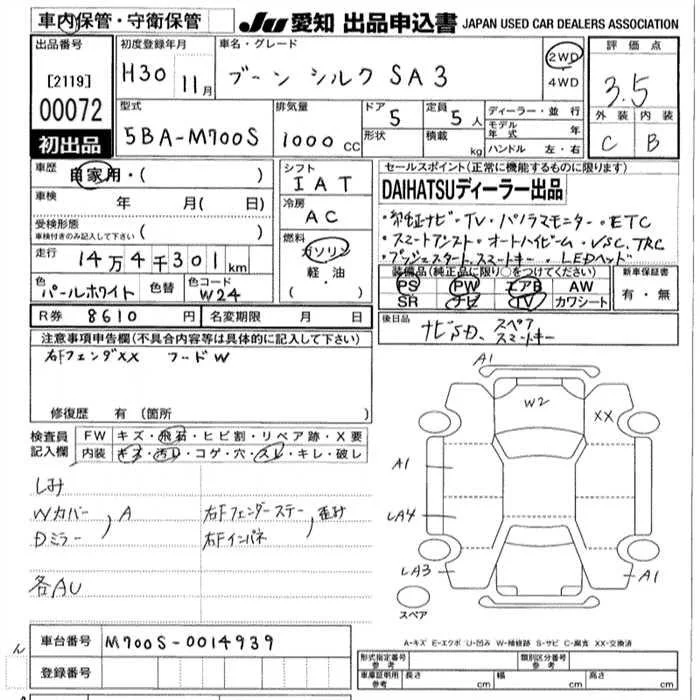 車内保管・守衛保管
JU 愛知 出品申込書 JAPAN USED CAR DEALERS ASSOCIATION
出品番号
[2119]
00072
初出品
初度登録年月
H30 11月
車名・グレード
ブーン シルク SA3
2WD
4WD
評価点
3.5
外装 内装
C B
型式
5BA-M700S
排気量
1000 CC
ドア 5
形状
定員 5人
積載 kg
ディーラー・並行
モデル年式 年
ハンドル 左・右
車歴
自家用・( )
車検 年 月( 日)
受検形態
車検付きのみ記入して下さい ( )
走行 14万4千301km
色 パールホワイト
色替
色コード W24
シフト
IAT
冷房
AC
燃料
ガソリン
軽・油
( ・ )
セールスポイント(正常に機能するものに限ります)
DAIHATSUディーラー出品
・純正ナビ・TV・パノラマモニター・ETC
・スマートアシスト・オートハイビーム・VSC.TRC
・プッシュスタート.スマートキー・LEDヘッド
装備品(純正品に限り○をつけてください)
PS PW エアB AW
SR ナビ TV カワシート
新車保証書
有・無
R券 8610円
名変期限 月 日
後日品
ナビSD、スペア
スマートキー
注意事項申告欄(不具合内容等は具体的に記入して下さい)
右Fフェンダ XX フードW
修復歴 有 (箇所 )
検査員
記入欄
FW キズ・飛石・ヒビ割・リペア跡・X要
内装 キズ・汚れ・コゲ・穴・スレ・キレ・破レ
しみ
Wカバー
Dミラー
A
右Fフェンダーステー
右Fインパネ
歪み
各AU
A1
W2
XX
A1
LA4
LA3
A1
スペア
A-キズ E-エクボ U-凹み W-補修跡 S-サビ C-腐食 XX-交換済
車台番号 M700S-0014939
登録番号
ん
形式指定番号
参考
類別区分番号
参考
車庫証明用
参考
長さ cm
幅 cm
高さ cm